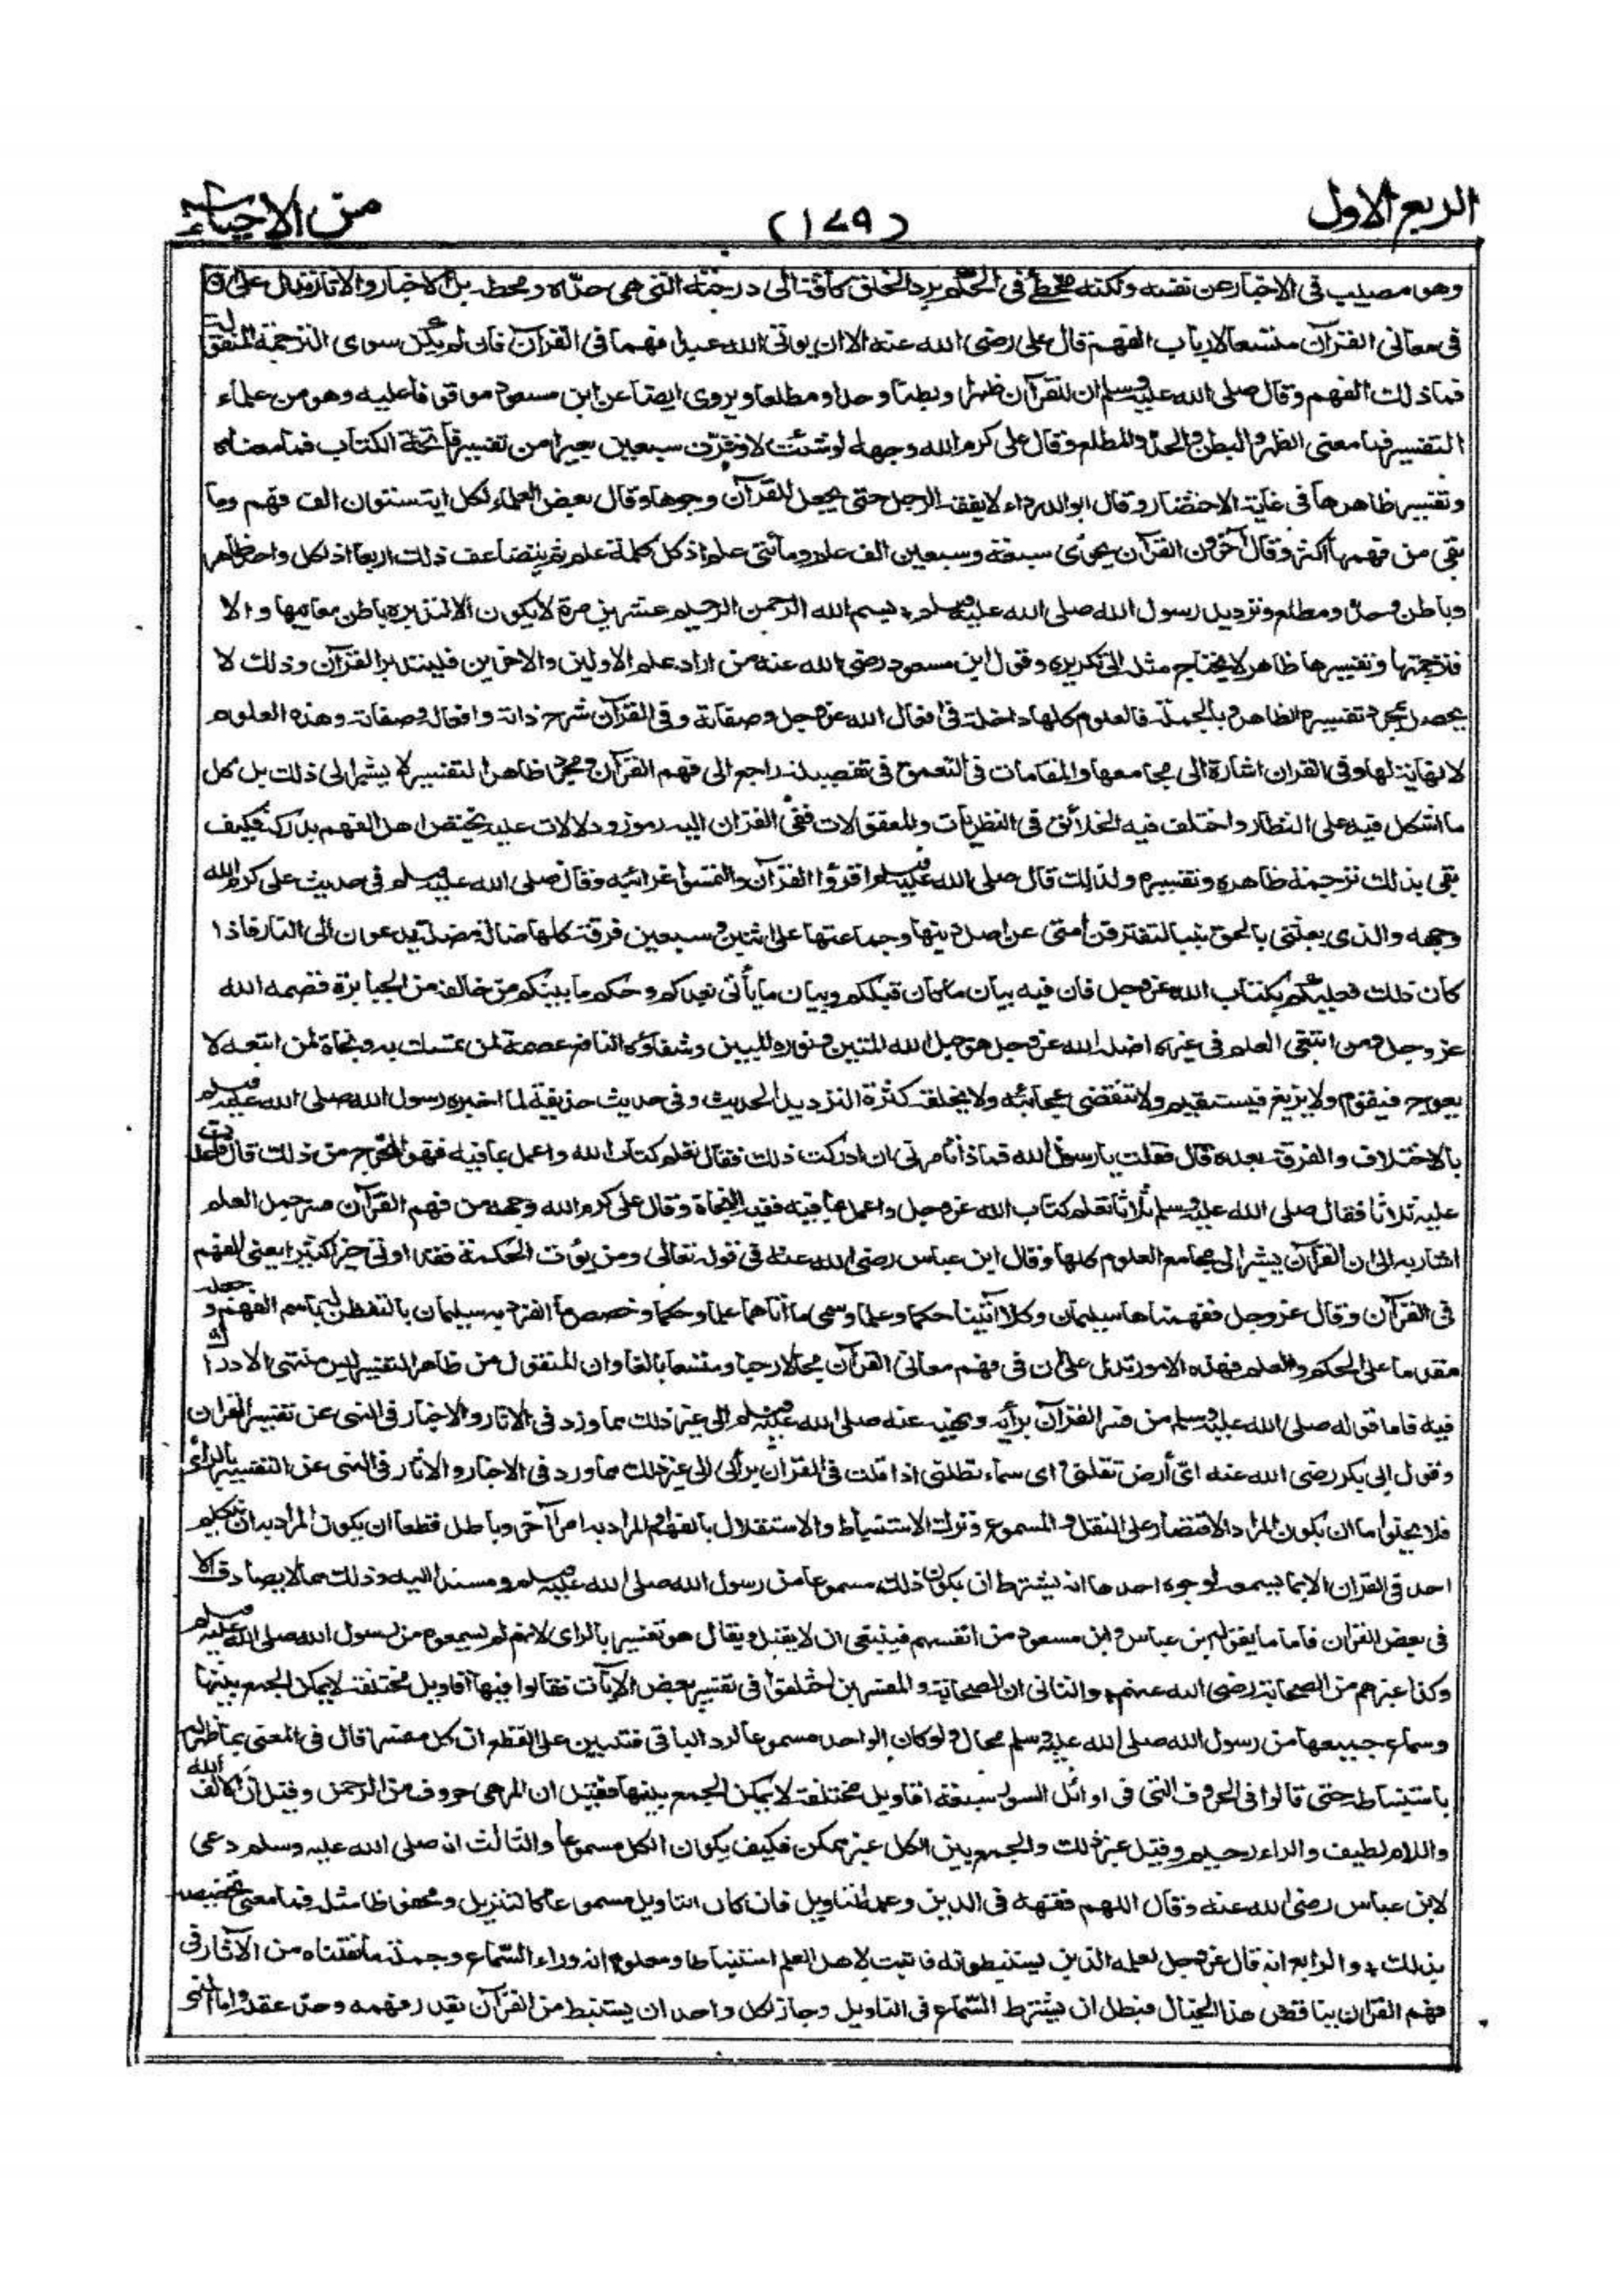 الربع الاول
(١٧٩)
من الاحياء
وهو مصيب فى الاخبار عن نفسه ولكنه مخطئ فى الحكم برد الخلق كافة الى درجته التى هى حده ومحطه بل الاخبار والاثار تدل على ان
فى معانى القرآن متسعا لارباب الفهم قال على رضى الله عنه الا ان يوتى الله عبدا فهما فى القرآن فان لم يكن سوى الترجمة المنقولة
فماذلك الفهم وقال صلى الله عليه وسلم ان للقرآن ظهرا وبطنا وحدا ومطلعا ويروى ايضا عن ابن مسعود موقوفا عليه وهو من علماء
التفسير فما معنى الظهر والبطن والحد والمطلع وقال على كرم الله وجهه لو شئت لاوقرت سبعين بعيرا من تفسير فاتحة الكتاب فما معناه
وتفسير ظاهرها فى غاية الاختصار وقال ابو الدرداء لا يفقه الرجل حتى يجعل للقرآن وجوها وقال بعض العلماء لكل اية ستون الف فهم وما
بقى من فهمها اكثر وقال آخرون القرآن يحوى سبعة وسبعين الف علم ومائتى علم اذ كل كلمة علم ثم يتضاعف ذلك اربعا اذ لكل واحد ظاهر
وباطن وحد ومطلع وترديد رسول الله صلى الله عليه وسلم بسم الله الرحمن الرحيم عشرين مرة لا يكون الا لتدبره باطن معانيها والا
فترجمتها وتفسيرها ظاهر لا يحتاج مثله الى تكريره وقول ابن مسعود رضى الله عنه من اراد علم الاولين والاخرين فليتدبر القرآن وذلك لا
يحصل بمجرد تفسيره الظاهر وبالجملة فالعلوم كلها داخلة فى افعال الله عز وجل وصفاته وفى القرآن شرح ذاته وافعاله وصفاته وهذه العلوم
لا نهاية لها وفى القران اشارة الى مجامعها والمقامات فى التعمق فى تفصيله راجع الى فهم القرآن ومجرد ظاهر التفسير لا يشير الى ذلك بل كل
ما اشكل فيه على النظار واختلف فيه الخلائق فى النظريات والمعقولات ففى القران اليه رموز ودلالات عليه يختص اهل الفهم بدركه فكيف
يفى بذلك ترجمة ظاهره وتفسيره ولذلك قال صلى الله عليه وسلم اقرؤا القرآن والتمسوا غرائبه وقال صلى الله عليه وسلم فى حديث على كرم الله
وجهه والذى بعثنى بالحق نبيا لتفترقن أمتى عن اصل دينها وجماعتها على اثنين وسبعين فرقة كلها ضالة مضلة يدعون الى النار فاذا
كان ذلك فعليكم بكتاب الله عز وجل فان فيه بيان ما كان قبلكم وبيان ما يأتى بعدكم وحكم ما بينكم من خالفه من الجبابرة قصمه الله
عز وجل ومن ابتغى العلم فى غيره اضله الله عز وجل هو حبل الله المتين ونوره المبين وشفاؤه النافع عصمة لمن تمسك به ونجاة لمن اتبعه لا
يعوج فيقوم ولا يزيغ فيستقيم ولا تنقضى عجائبه ولا يخلقه كثرة الترديد الحديث وفى حديث حذيفة لما اخبره رسول الله صلى الله عليه وسلم
بالاختلاف والفرقة بعده قال فقلت يا رسول الله فماذا تأمرنى ان ادركت ذلك فقال تعلم كتاب الله واعمل بما فيه فهو المخرج من ذلك قال فاعدت
عليه ثلاثا فقال صلى الله عليه وسلم ثلاثا تعلم كتاب الله عز وجل واعمل بما فيه ففيه النجاة وقال على كرم الله وجهه من فهم القرآن فسر جمل العلم
اشار به الى ان القرآن يشير الى مجامع العلوم كلها وقال ابن عباس رضى الله عنه فى قوله تعالى ومن يؤت الحكمة فقد اوتى خيرا كثيرا يعنى الفهم
فى القرآن وقال عز وجل ففهمناها سليمان وكلا آتينا حكما وعلما وسمى ما آتاهما علما وحكما وخصص ما انفرد به سليمان بالتفطن له باسم الفهم وجعله
مقدما على الحكم والعلم فهذه الامور تدل على ان فى فهم معانى القرآن مجالا رحبا ومتسعا بالغا وان المنقول من ظاهر التفسير ليس منتهى الادراك
فيه فاما قوله صلى الله عليه وسلم من فسر القرآن برأيه ونهيه عنه صلى الله عليه وسلم الى غير ذلك مما ورد فى الاثار والاخبار فى النهى عن تفسير القران
وقول ابى بكر رضى الله عنه اى أرض تقلنى واى سماء تظلنى اذا قلت فى القران برأى الى غير ذلك مما ورد فى الاخبار والاثار فى النهى عن التفسير بالرأى
فلا يخلو اما ان يكون المراد الاقتصار على النقل والمسموع وترك الاستنباط والاستقلال بالفهم او المراد به امرا آخر وباطل قطعا ان يكون المراد به ان لا يتكلم
احد فى القران الا بما يسمعه لوجوه احدها انه يشترط ان يكون ذلك مسموعا من رسول الله صلى الله عليه وسلم ومسندا اليه وذلك مما لا يصادف الا
فى بعض القران فاما ما يقوله ابن عباس وابن مسعود من انفسهم فينبغى ان لا يقبل ويقال هو تفسير بالراى لانهم لم يسمعوه من رسول الله صلى الله عليه وسلم
وكذا غيرهم من الصحابة رضى الله عنهم والثانى ان الصحابة والمفسرين اختلفوا فى تفسير بعض الآيات فقالوا فيها أقاويل مختلفة لا يمكن الجمع بينها
وسماع جميعها من رسول الله صلى الله عليه وسلم محال ولو كان الواحد مسموعا لرد الباقى فتبين على القطع ان كل مفسر قال فى المعنى بما ظهر له
باستنباطه حتى قالوا فى الحروف التى فى اوائل السور سبعة اقاويل مختلفة لا يمكن الجمع بينها فقيل ان الر هى حروف من الرحمن وقيل ان الالف الله
واللام لطيف والراء رحيم وقيل غير ذلك والجمع بين الكل غير ممكن فكيف يكون الكل مسموعا والثالث انه صلى الله عليه وسلم دعى
لابن عباس رضى الله عنه وقال اللهم فقهه فى الدين وعلمه التاويل فان كان التاويل مسموعا كالتنزيل ومحفوظا مثله فما معنى تخصيصه
بذلك والرابع انه قال عز وجل لعلمه الذين يستنبطونه فاثبت لاهل العلم استنباطا ومعلوم انه وراء السماع وجملة ما نقلناه من الآثار فى
فهم القران يناقض هذا الخيال فبطل ان يشترط السماع فى التاويل وجاز لكل واحد ان يستنبط من القرآن بقدر فهمه وحد عقله واما النهى